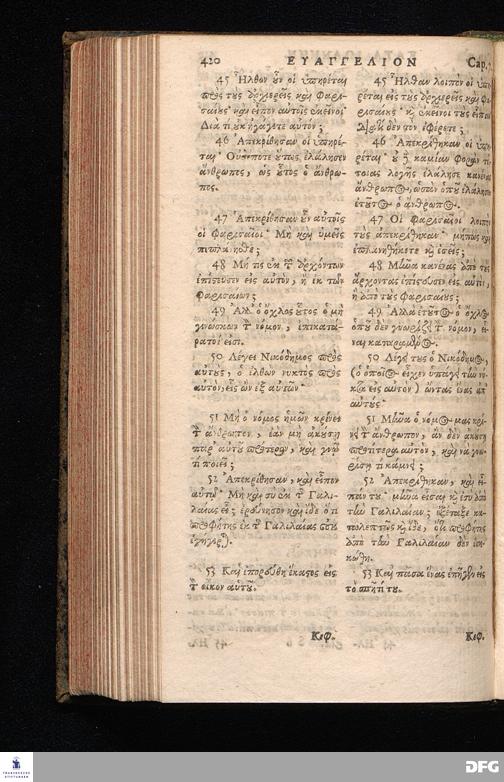 420
ΕΥΑΓΓΕΛΙΟΝ
Cap.
45 Ἦλθον ȣ̓ν οἱ ὑπηρέται
πρὸς τȣς ἀρχιερεῖς καὶ Φαρι-
σαίȣς· καὶ εἶπον αὐτοῖς ἐκεῖνοι·
Διὰ τί ȣ̓κ ἠγάγετε αὐτόν;
46 Ἀπεκρίθησαν οἱ ὑπηρέ-
ται· Οὐδέποτε ȣ̔́τως ἐλάλησεν
ἄνθρωπος, ὡς ȣ̔͂τος ὁ ἄνθρω-
πος.
47 Ἀπεκρίθησαν ȣ̓ν αὐτοῖς
οἱ Φαρισαῖοι· Μὴ καὶ ὑμεῖς
πεπλάνησθε;
48 Μή τις ἐκ τ͂ ἀρχόντων
ἐπίστευσεν εἰς αὐτὸν, ἢ ἐκ τῶν
Φαρισαίων;
49 Ἀλλ᾽ ὁ ὄχλος ȣ̔͂τος ὁ μὴ
γινώσκων τ̀ νόμον, ἐπικατά-
ρατοί εἰσι.
50 Λέγει Νικόδημος πρὸς
αὐτȣ̀ς, ὁ ἐλθὼν νυκτὸς πρὸς
αὐτὸν, εἷς ὢν ἐξ αὐτῶν·
51 Μὴ ὁ νόμος ἡμῶν κρίνει
τ̀ ἄνθρωπον, ἐὰν μὴ ἀκούσῃ
παρ᾽ αὐτȣ͂ πρότερον, καὶ γνῷ
τί ποιεῖ;
52 Ἀπεκρίθησαν, καὶ εἶπον
αὐτῷ· Μὴ καὶ σὺ ἐκ τ͂ Γαλι-
λαίας εἶ; ἐρεύνησον καὶ ἴδε ὅτι
προφήτης ἐκ τ͂ Γαλιλαίας ȣ̓κ
ἐγήγερται.
53 Καὶ ἐπορεύθη ἕκαστος εἰς
τ̀ οἶκον αὐτȣ͂.
Κεφ.
45 Ἦλθαν λοιπὸν οἱ ὑπη-
ρέται εἰς τȣς ἀρχιερεῖς καὶ Φα-
ρισαίȣς κ̀ ἐκεῖνοι τȣς εἶπαν
Διατὶ δὲν τον ἐφέρετε;
46 Ἀπεκρίθηκαν οἱ ὑπη-
ρέται
λογῆς ἐλάλησε κανένας
ἄνθρωπος, ὡσὰν ὁπȣ ἐλάλησεν
ἐτȣ͂τος ὁ ἄνθρωπος.
47 Οἱ Φαρισαῖοι λοιπὸν
τȣς ἀπεκρίθηκαν· μήπως καὶ
ἐπλανηθήκετε κ̀ ἐσεῖς;
48 Μῆνα κανένας ἀπὸ τȣς
ἄρχοντας ἐπίστευσεν εἰς αὐτὸν,
ἢ ἀπὸ τȣς Φαρισαίȣς;
49 Ἀλλὰ ἐτȣ͂τος ὁ ὄχλος
ὁπȣ δὲν γνωρίζει τ̀ νόμον, εἶ-
ναι
50 Λέγει τȣς ὁ Νικόδημος,
(ὁ ὁποῖος εἶχεν ὑπάγει τὴν νύ-
κτα εἰς αὐτὸν) ὄντας ἕνας ἀπ᾽
αὐτȣ́ς·
51 Μῆνα ὁ νόμος μας κρί-
νει τ̀ ἄνθρωπον, ἂν δὲν ἀκούσῃ
προτίτερα αὐτὸν, καὶ νὰ γνω-
ρίσῃ τι κάμνει;
52 Ἀπεκρίθηκαν, καὶ εἶ-
πάν τȣ· μῆνα εἶσαι κ̀ ἐσὺ ἀπὸ
τὴν Γαλιλαίαν; ἐξέταξε κα-
κ̀ ἰδὲ, ὅτι προφήτης
ἀπὸ τὴν Γαλιλαίαν δὲν ἐση-
κώθη.
53 Καὶ πᾶσα ἕνας ἐπῆγεν εἰς
τὸ σπῆτί τȣ.
Κεφ.
DFG